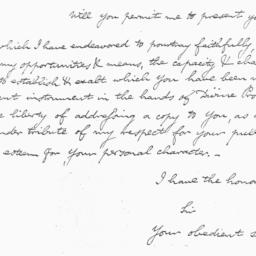 Will you permit me to present y
which I have endeavored to pourtray faithfully,
my opportunities & means, the capacity & cha
to establish & exalt which You have been
ent instrument in the hands of Divine Pro
e liberty of addressing a copy to You, as a
nder tribute of my respect for your pub
esteem for Your personal character. –
I have the hono
Sir
Your obedient s